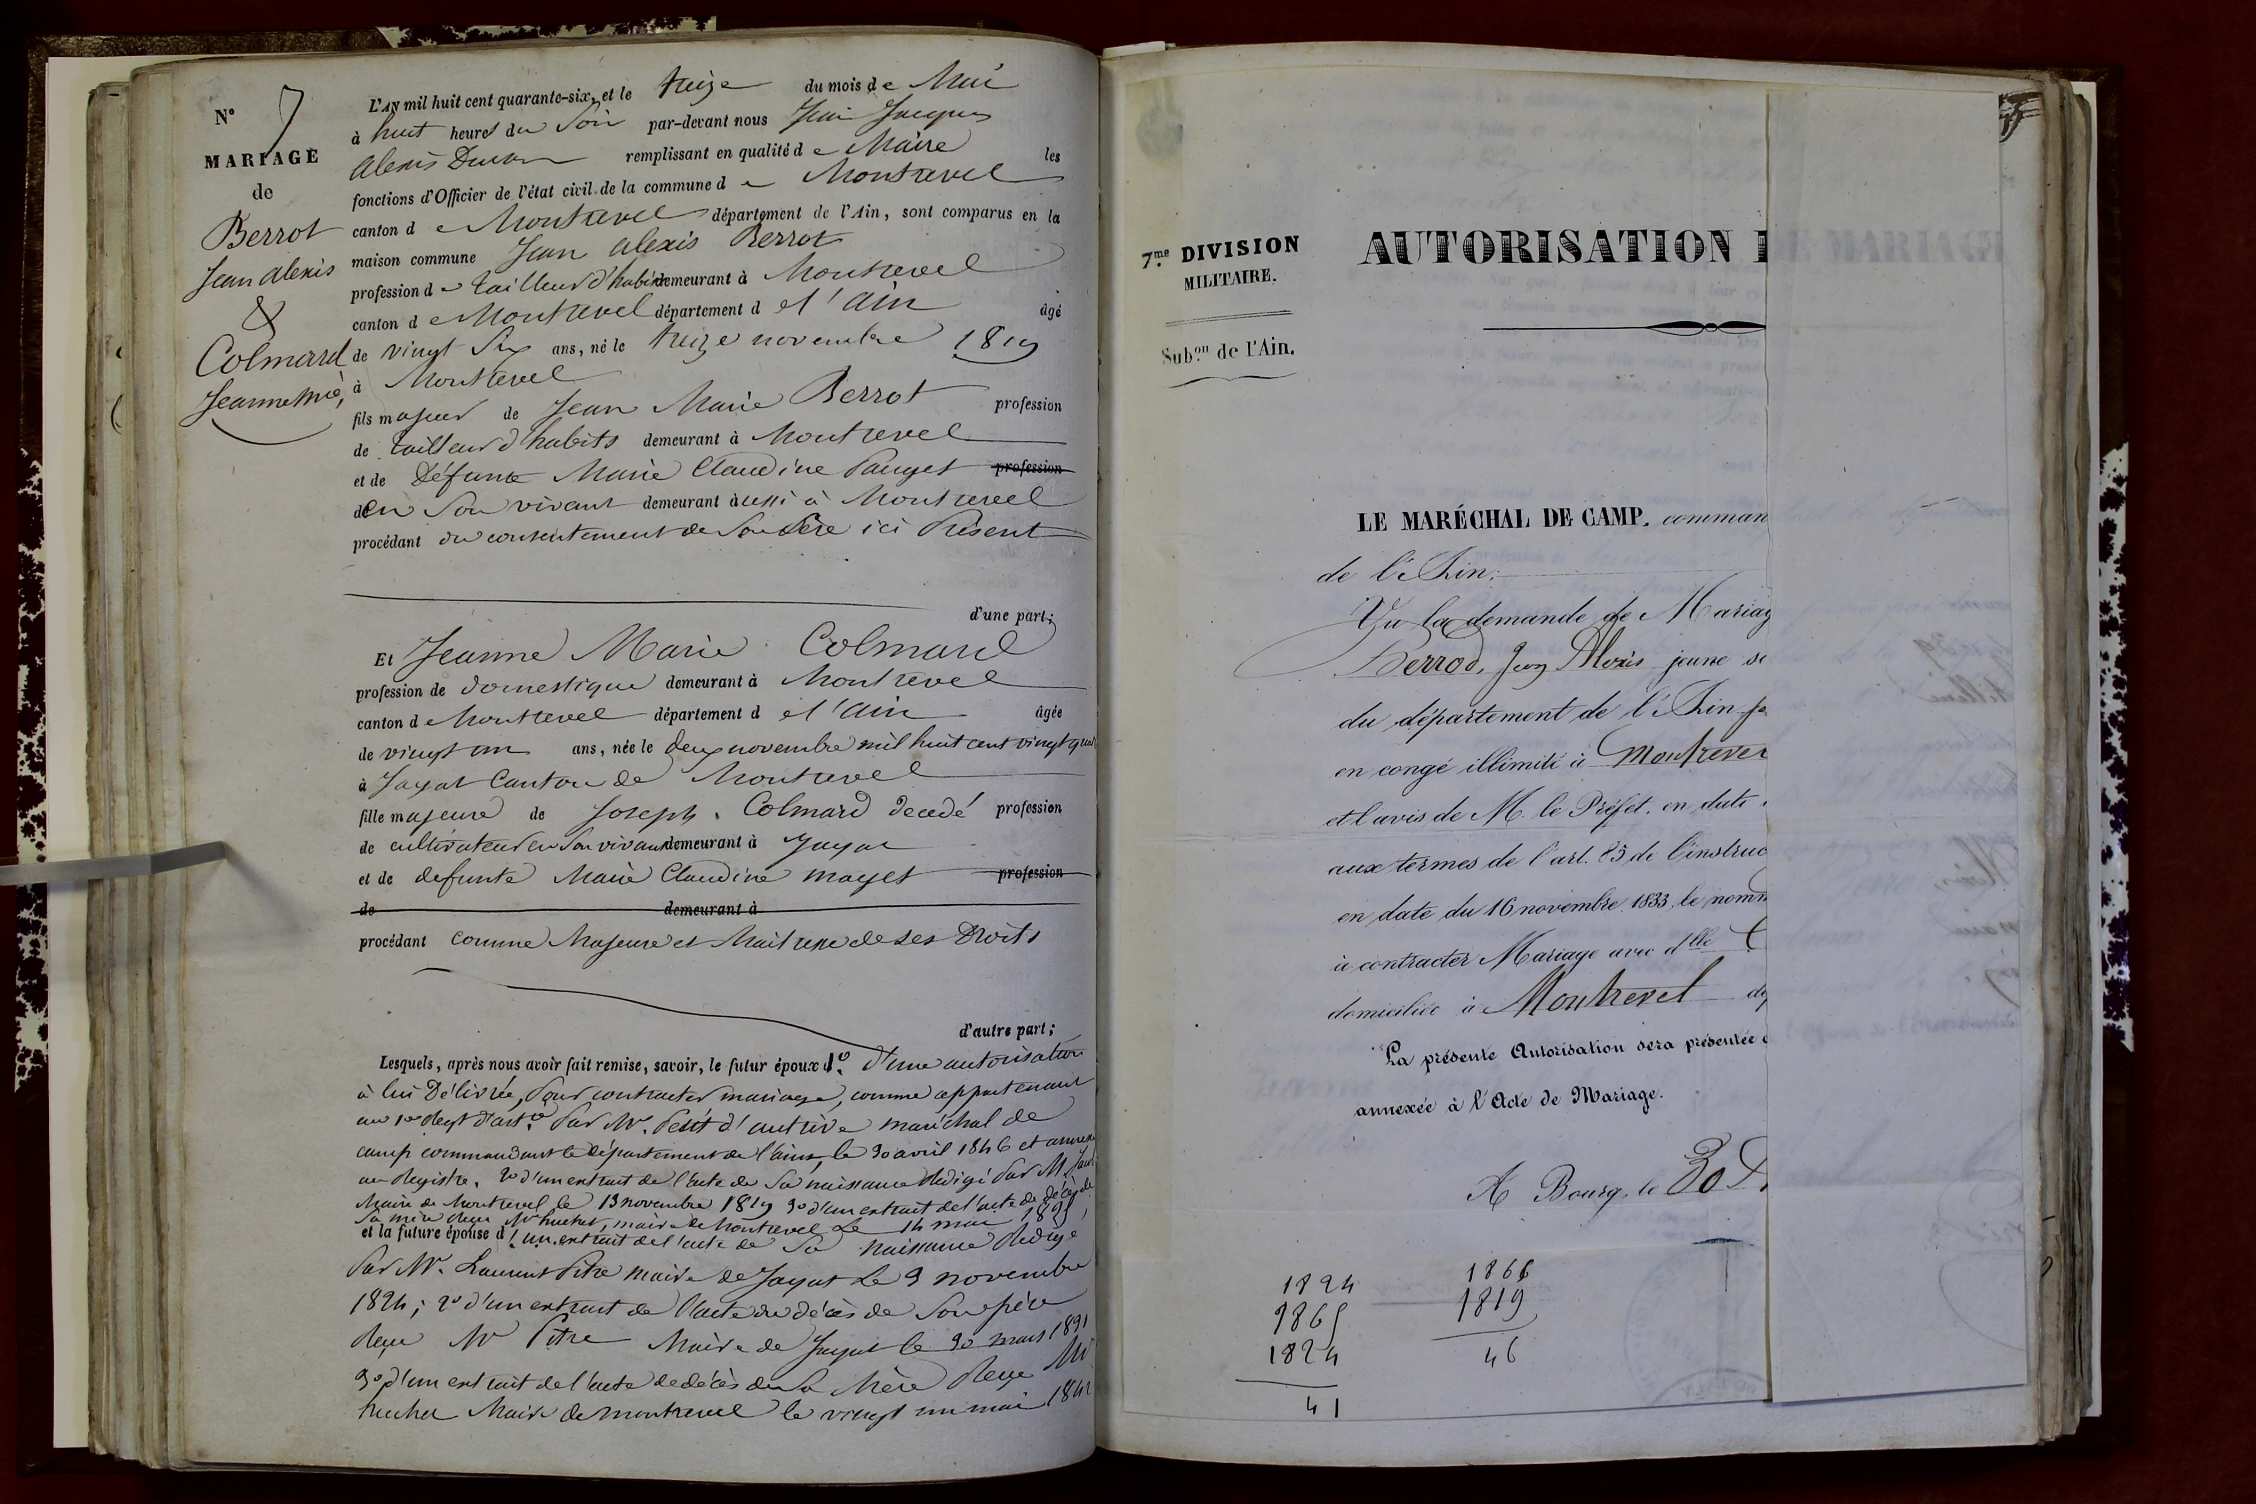 N° 7
MARIAGE
de
Berrot
Jean Alexis
&
Colmard
Jeanne Mie,
L'AN mil huit cent quarante-six, et le treize du mois de Mai
à huit heures du Soir par-devant nous Jean Jacques
Alexis remplissant en qualité de Maire les
fonctions d'Officier de l'état civil de la commune de Montrevel
canton de Montrevel département de l'Ain, sont comparus en la
maison commune Jean Alexis Berrot
profession de tailleur d'habits demeurant à Montrevel
canton de Montrevel département de l'Ain âgé
de vingt Six ans, né le treize novembre 1819
à Montrevel
fils majeur de Jean Marie Berrot profession
de tailleur d'habits demeurant à Montrevel
et de Défunte Marie Claudine Pauget profession
de en Son vivant demeurant aussi à Montrevel
procédant du consentement de Son Père ici Présent
d'une part;
Et Jeanne Marie Colmard
profession de domestique demeurant à Montrevel
canton de Montrevel département de l'Ain âgée
de vingt un ans, née le deux novembre mil huit cent vingt quatre
à Jayat Canton de Montrevel
fille majeure de Joseph Colmard décédé profession
de cultivateur en Son vivant demeurant à Jayat
et de défunte Marie Claudine mayet profession
de demeurant à
procédant comme Majeure et Maitresse de ses Droits
d'autre part;
Lesquels, après nous avoir fait remise, savoir, le futur époux 1° d'une autorisation
à lui Délivrée, Pour contracter mariage, comme appartenant
au 1er Regt d'artie Par Mr. Petit d'autrive maréchal de
camp commandant le département de l'ain, le 30 avril 1846 et annexé
au Registre. 2° d'un extrait de l'acte de Sa naissance Rédigé Par M
Maire de Montrevel le 13 novembre 1819 3° d'un extrait de l'acte de décès de
Sa mère Reçu Mr huchet, maire de Montrevel Le 14 mai
et la future épouse d'un extrait de l'acte de Sa naissance Rédigé
Par Mr. Laurent Pitre maire de Jayat Le 3 novembre
1824; 2° d'un extrait de l'acte de décès de Son père
Reçu Mr Pitre Maire de Jayat le 30 mars 1831
3° d'un extrait de l'acte de décès de Sa Mère Reçu Mr
huchet Maire de montrevel le vingt un mai 1842
7.me DIVISION
MILITAIRE.
Sub.on de l'Ain.
AUTORISATION D
LE MARÉCHAL DE CAMP, comman
de l'Ain;
Vu la demande de Mariag
Berrod, Jean Alexis jeune so
du département de l'Ain
en congé illimité à Montrevel
et l'avis de M. le Préfet, en date
aux termes de l'art. 85 de l'instruc
en date du 16 novembre 1833, le nomm
à contracter Mariage avec dlle C
domiciliée à Montrevel dé
La présente Autorisation sera présentée
annexée à l'Acte de Mariage.
A Bourg, le 30
1824
1865
1824
41
1866
1819
46